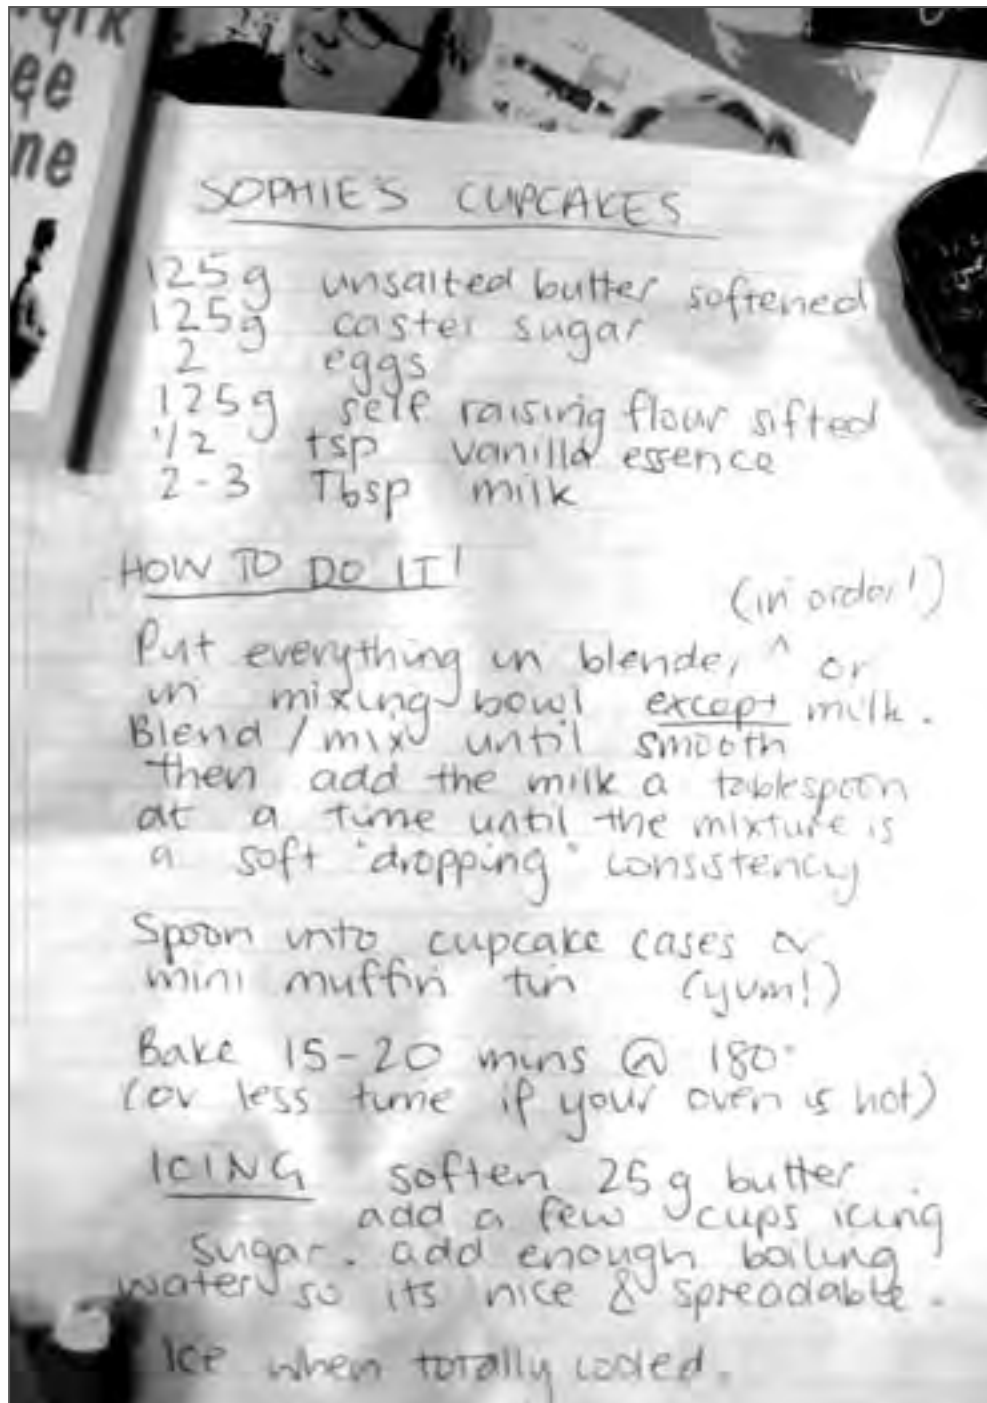 ee
ne
SOPHIE'S CUPCAKES
125g unsalted butter softened
125g caster sugar
2 eggs
125g self raising flour sifted
1/2 tsp vanilla essence
2-3 Tbsp milk
HOW TO DO IT!
(in order!)
Put everything in blender ^ or
in mixing bowl except milk.
Blend/mix until smooth
then add the milk a tablespoon
at a time until the mixture is
a soft "dropping" consistency
Spoon into cupcake cases or
mini muffin tin (yum!)
Bake 15-20 mins @ 180°
(or less time if your oven is hot)
ICING soften 25g butter.
add a few cups icing
sugar. add enough boiling
water so its nice & spreadable.
Ice when totally cooled.